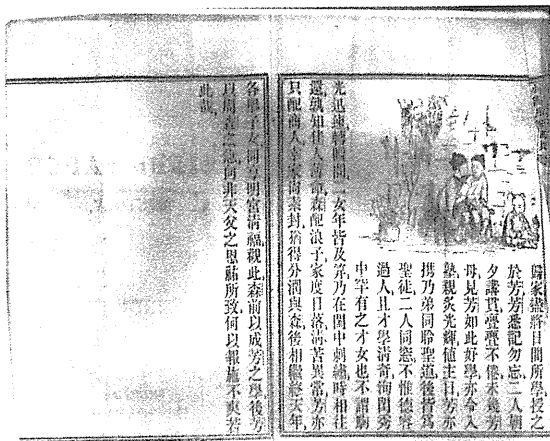 歸家盡將日間所學授之
於芳芳悉記勿忘二人朝
夕講貫亹亹不倦未幾芳
母見芳如此好學亦令入
塾親炙光輝値主日芳亦
攜乃弟同聆聖道後皆爲
聖徒二人同窓不惟德容
過人且才學淸奇洵閨秀
中罕有之才女也不謂駒
光迅速轉瞬間二女年皆及笄乃在閨中刺繡時相往
還孰知佳人薄命森配浪子家度日落淸苦異常芳亦
只配商人幸家尙素封猶得分潤與森後相繼終天年
各舉子女同享明富淸福觀此森前以成芳之學後芳
以周森之急何非天父之恩賜所致何以報施不爽若
此哉